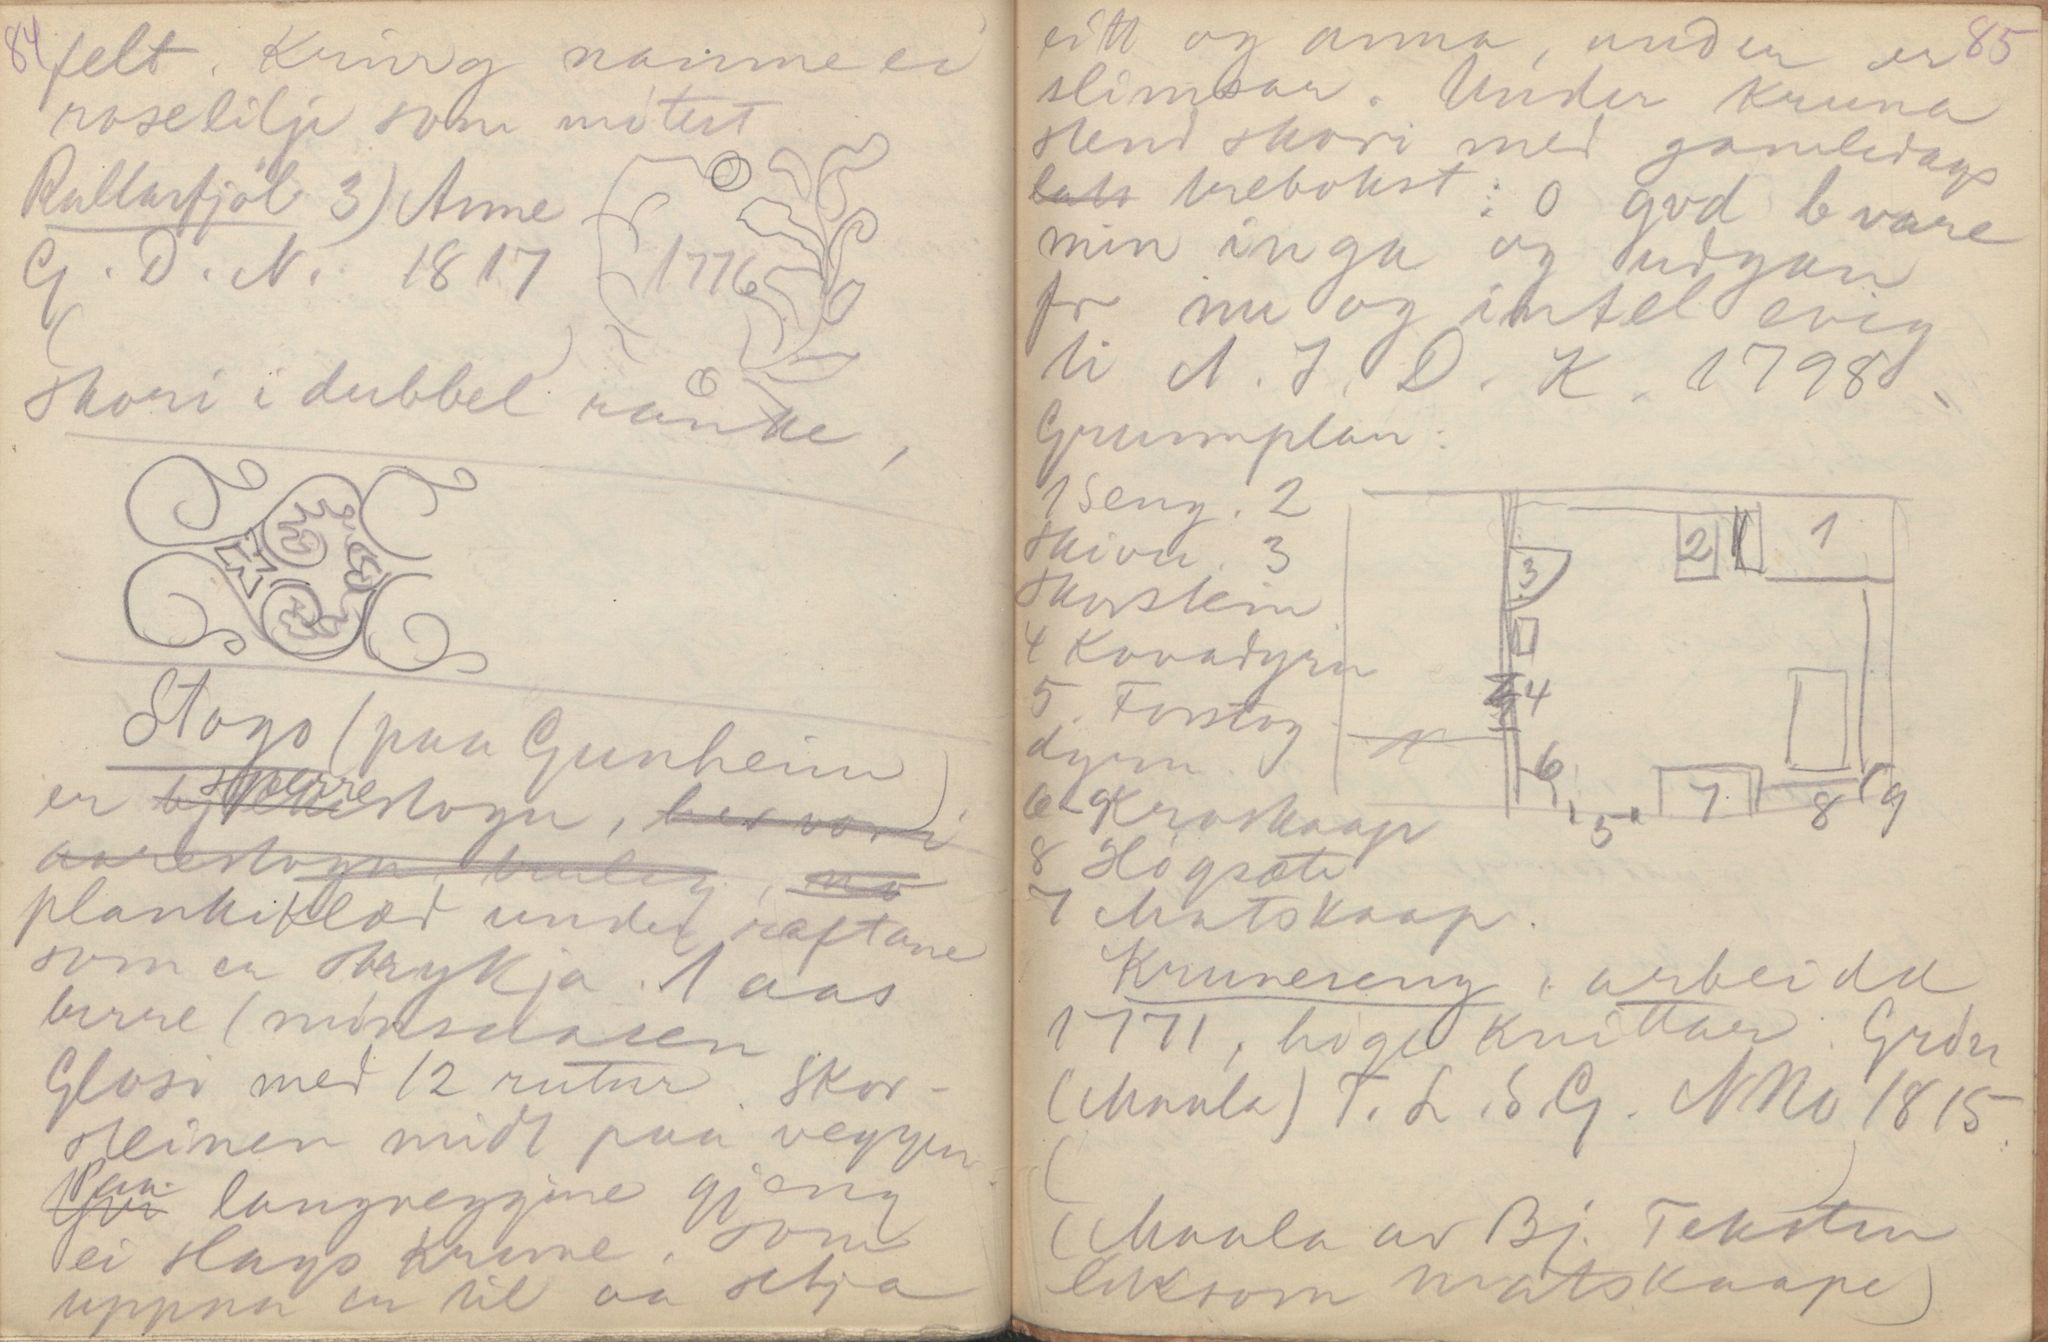 84
felt. Kring namne ei
roselilje som møtest
Rullarfjøl 3) Anne
G. D. N. 1817
1776
(skori i dubbel ranke,
Stogo (paa Gunheim)
er sperrestogu,
aarestogu
plankiklæd under raftane
som er strykja. 1 aas
berre (mønsaasen
Glasi med 12 rutur. Skor-
steinen midt paa veggen
Paa langveggine gjeng
ei slags krune, som
uppaa er til aa setja
85
eitt og anna, under er
slimsar. Under kruna
stend skori med gamledags
trebokst: O gvd bvare
min inga og udgan
fr nu og intel evig
ti N. J. D. K. 1798.
Grunnplan:
1 Seng. 2
Skivu. 3
Skorstein
4 Kovadyrn
5. Forstog
dyrn
6-9 Kroskaap
8 Høgsæte
7 Matskaap.
1
2
3
4
6
7
8
9
5
Kruneseng, arbeidd
1771, høge knittar. Grøn
(Maala) T. L. S. G. NNo 1815.
(Maala av Bj. Teksten
liksom matskaape)